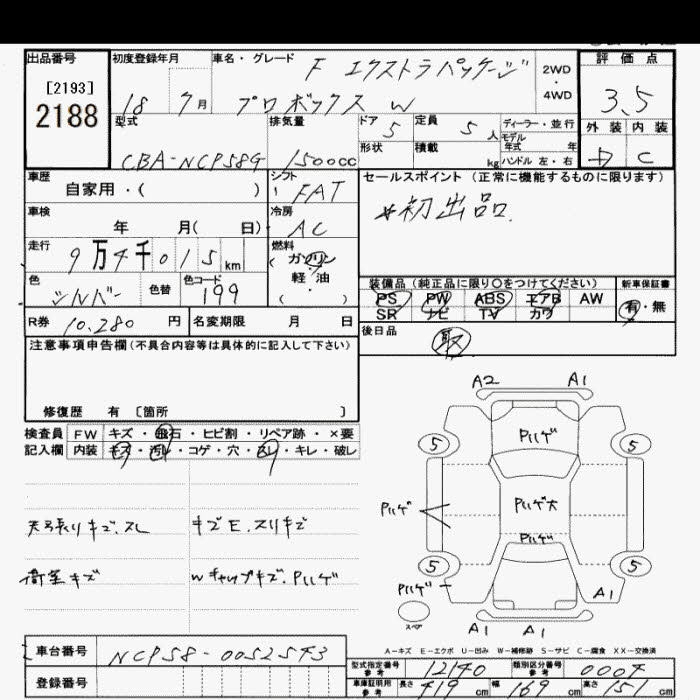 出品番号 初度登録年月 車名・グレード F エクストラパッケージ 2WD・4WD 評価点
[2193]
2188 18 7月 プロボックス W 3.5
型式 排気量 ドア 5 定員 5人 ディーラー・並行 外装 内装
CBA-NCP58G 1500cc 形状 積載 kg モデル年式 年 C
ハンドル 左・右
車歴 自家用・( ) シフト FAT セールスポイント(正常に機能するものに限ります)
車検 年 月( 日) 冷房 AC *初出品.
走行 9万4千015km 燃料 ガソリン 軽・油 ( ・ )
色 シルバー 色替 色コード 199
装備品(純正品に限り○をつけてください) 新車保証書
PS PW ABS エアB AW 有・無
SR ナビ TV カワ
R券 10,280円 名変期限 月 日 後日品 取
注意事項申告欄(不具合内容等は具体的に記入して下さい)
修復歴 有 〔箇所 〕
検査員 FW キズ・飛石・ヒビ割・リペア跡・×要
記入欄 内装 キズ・汚れ・コゲ・穴・スレ・キレ・破レ
天張りキズ.スレ キズE.スリキズ
荷室キズ Wチャップキズ.Pハゲ
A2 A1
Pハゲ
5 5
Pハゲ Pハゲ大
Pハゲ
5 5
Pハゲ A1
スペア
A1 A1
A-キズ E-エクボ U-凹み W-補修跡 S-サビ C-腐食 XX-交換済
車台番号 NCP58-0052543
型式指定番号 参考 12140 類別区分番号 参考 0004
登録番号 車庫証明用 参考 長さ 419cm 幅 169cm 高さ 151cm